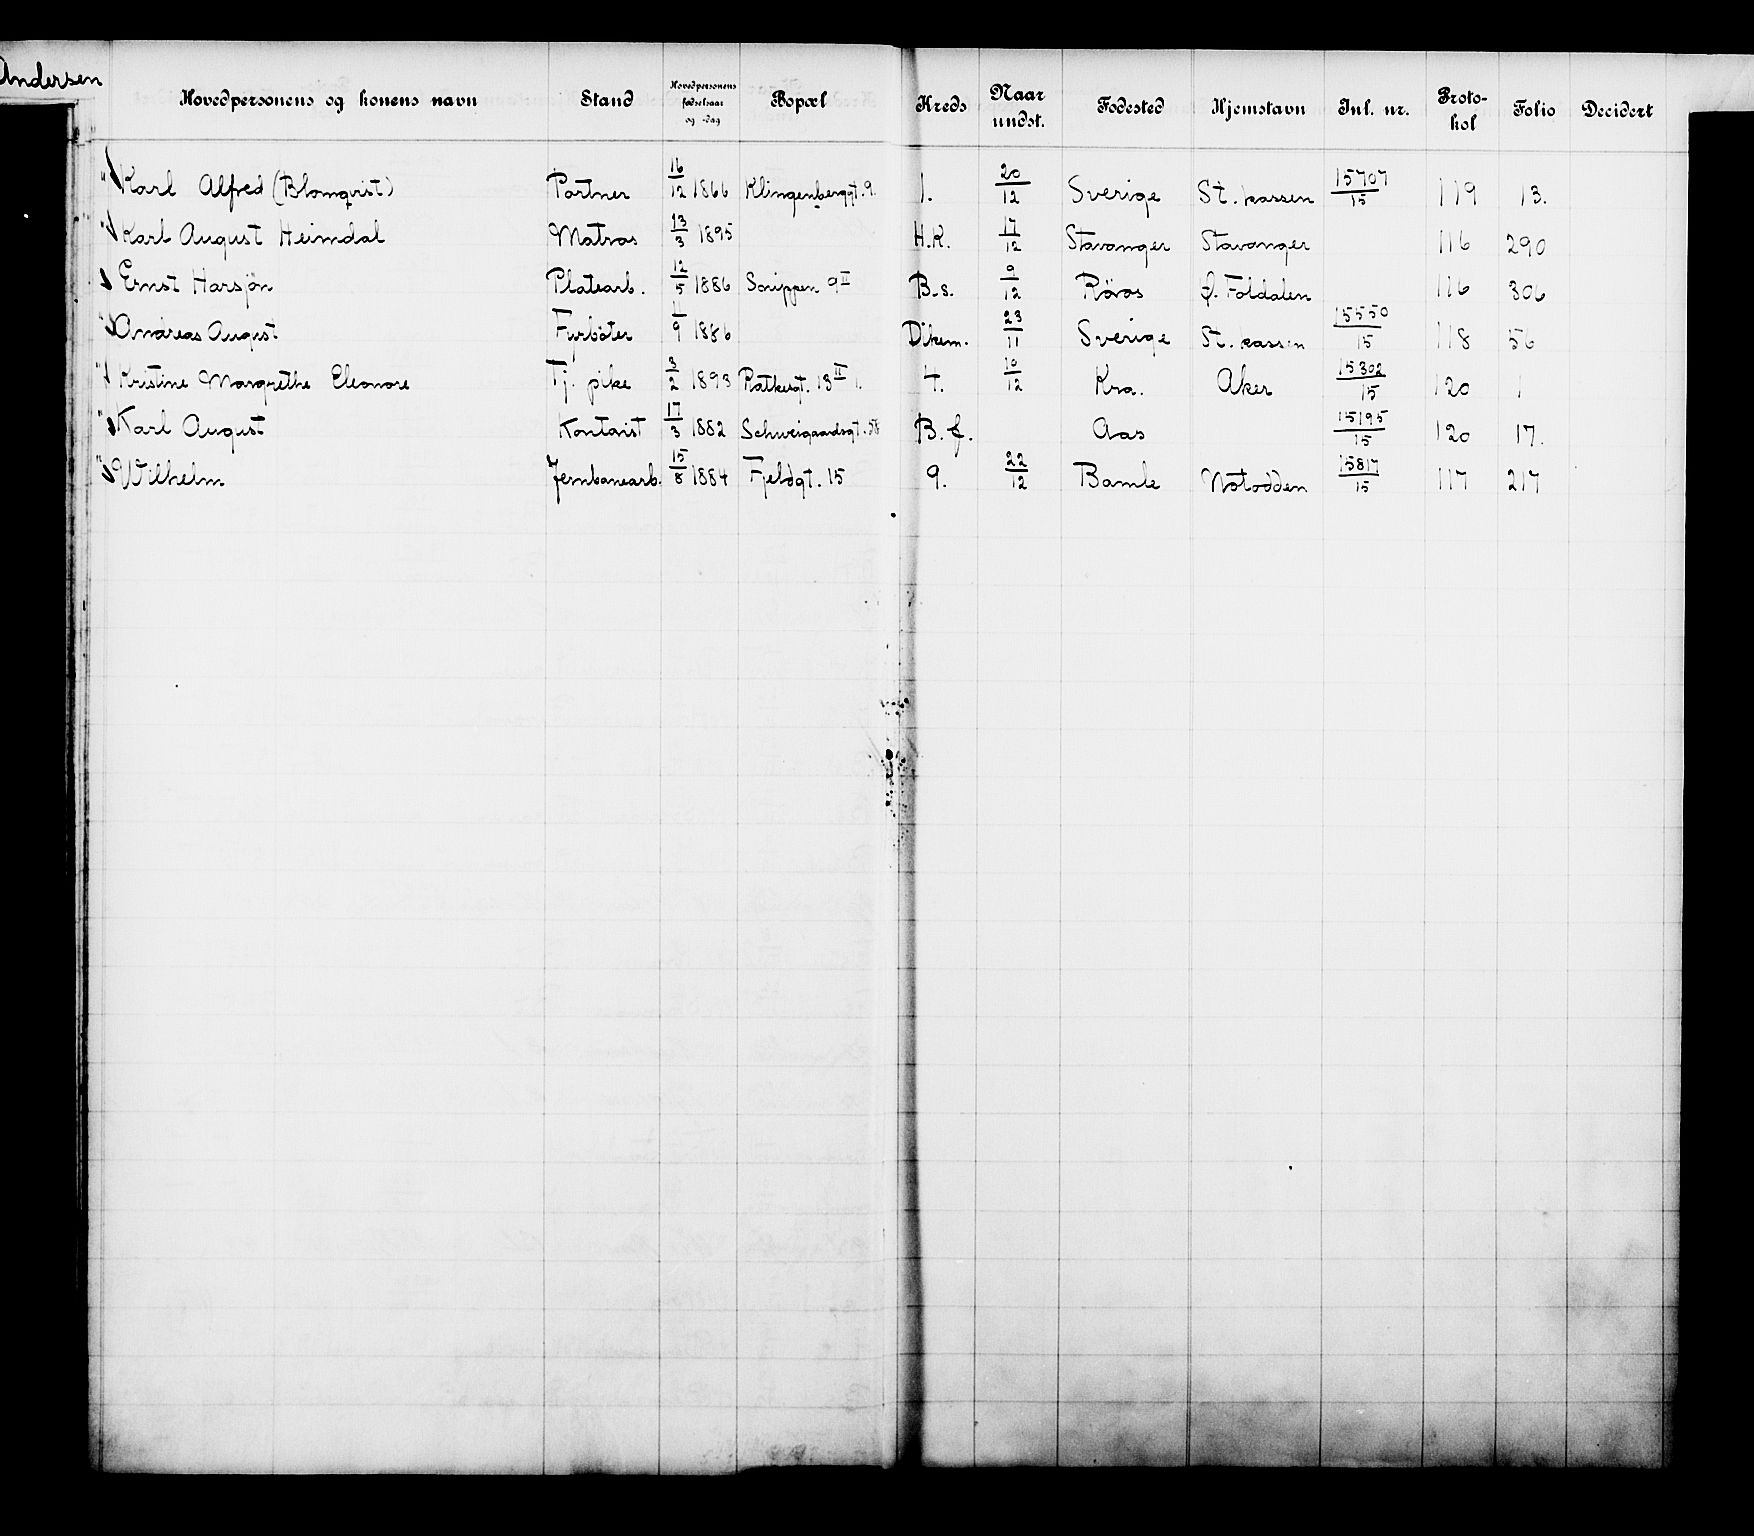 Andersen
Hovedpersonens og konens navn Stand Hovedpersonens fødselsaar og -dag Bopæl Kreds Naar undst. Fødested Hjemstavn Inl. nr. Protokol Folio Decidert
" Karl Alfred (Blomqvist) Portner 16/12 1866 Klingenberggt. 9. 1. 20/12 Sverige St. kassen 15707/15 119 13.
" Karl August Heimdal Matros 13/3 1895 H.K. 17/12 Stavanger Stavanger 116 290
Ernst Harsjøn Platearb. 12/5 1886 9 II B.s. 9/12 Röros Foldalen 116 306
" Andreas August Fyrbøter 1/9 1886 Dikem. 23/11 Sverige St. kassen 15550/15 118 56
" Kristine Margrethe Eleonore Tj. pike 3/2 1893 13 II 4. 10/12 Kra. Aker 15302/15 120 1
" Karl August Kontorist 17/3 1882 Schweigaardsgt. 58 B. f. Aas 15195/15 120 17.
" Wilhelm Jernbanearb. 15/8 1884 Fjeldgt. 15 9. 22/12 Bamle Notodden 15817/15 117 217